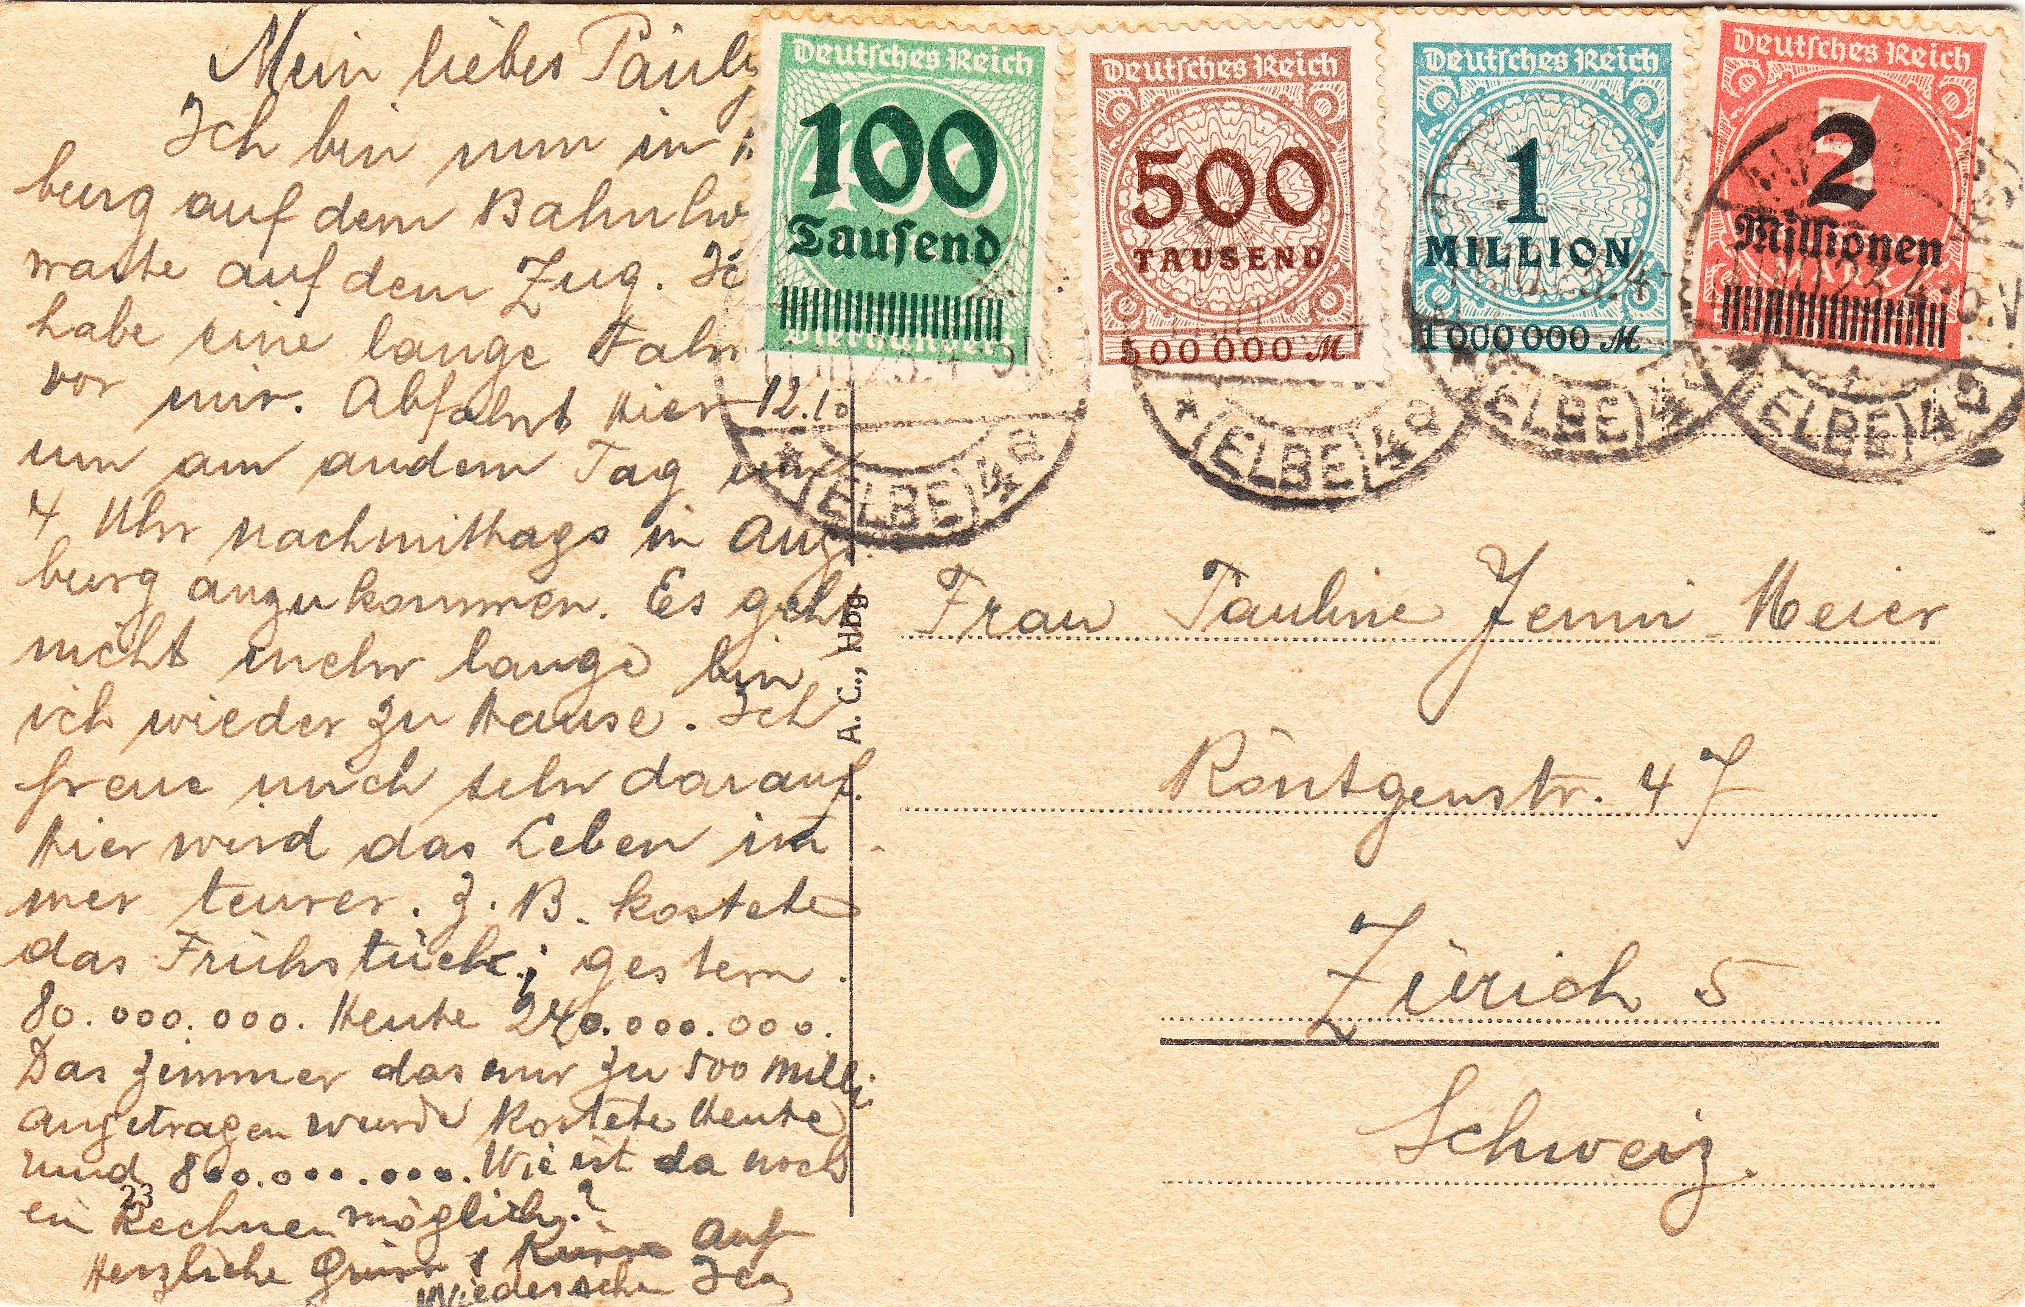 Mein liebes Pauly
Ich bin nun in
burg auf dem Bahnho
warte auf dem Zug. Ic
habe eine lange Fahr
vor mir. Abfahrt Hier 12.10
um am andern Tag um
4 Uhr nachmittags in Augs
burg anzukommen. Es geht
nicht mehr lange bin
ich wieder zu Hause. Ich
freue mich sehr darauf.
Hier wird das Leben im
mer teurer. Z. B. kostete
das Frühstück; gestern
80.000.000. Heute 240.000.000.
Das Zimmer das mir zu 500 Milli
angetragen wurde kostete Heute
rund 800.000.000. Wie ist da noch
ein Rechnen möglich?
23
Herzliche Grüsse & Küsse Auf
Wiedersehen
Deutsches Reich
100
400
Tausend
Vierhundert
Deutsches Reich
500
TAUSEND
500000 M
Deutsches Reich
1
MILLION
1000000 M
Deutsches Reich
2
Millionen
* (ELBE) 4 a
* (ELBE) 4 a
(ELBE) 4
(ELBE) 4 a
A. C., Hbg.
Frau Pauline Jenni-Meier
Röntgenstr. 47
Zürich 5
Schweiz.